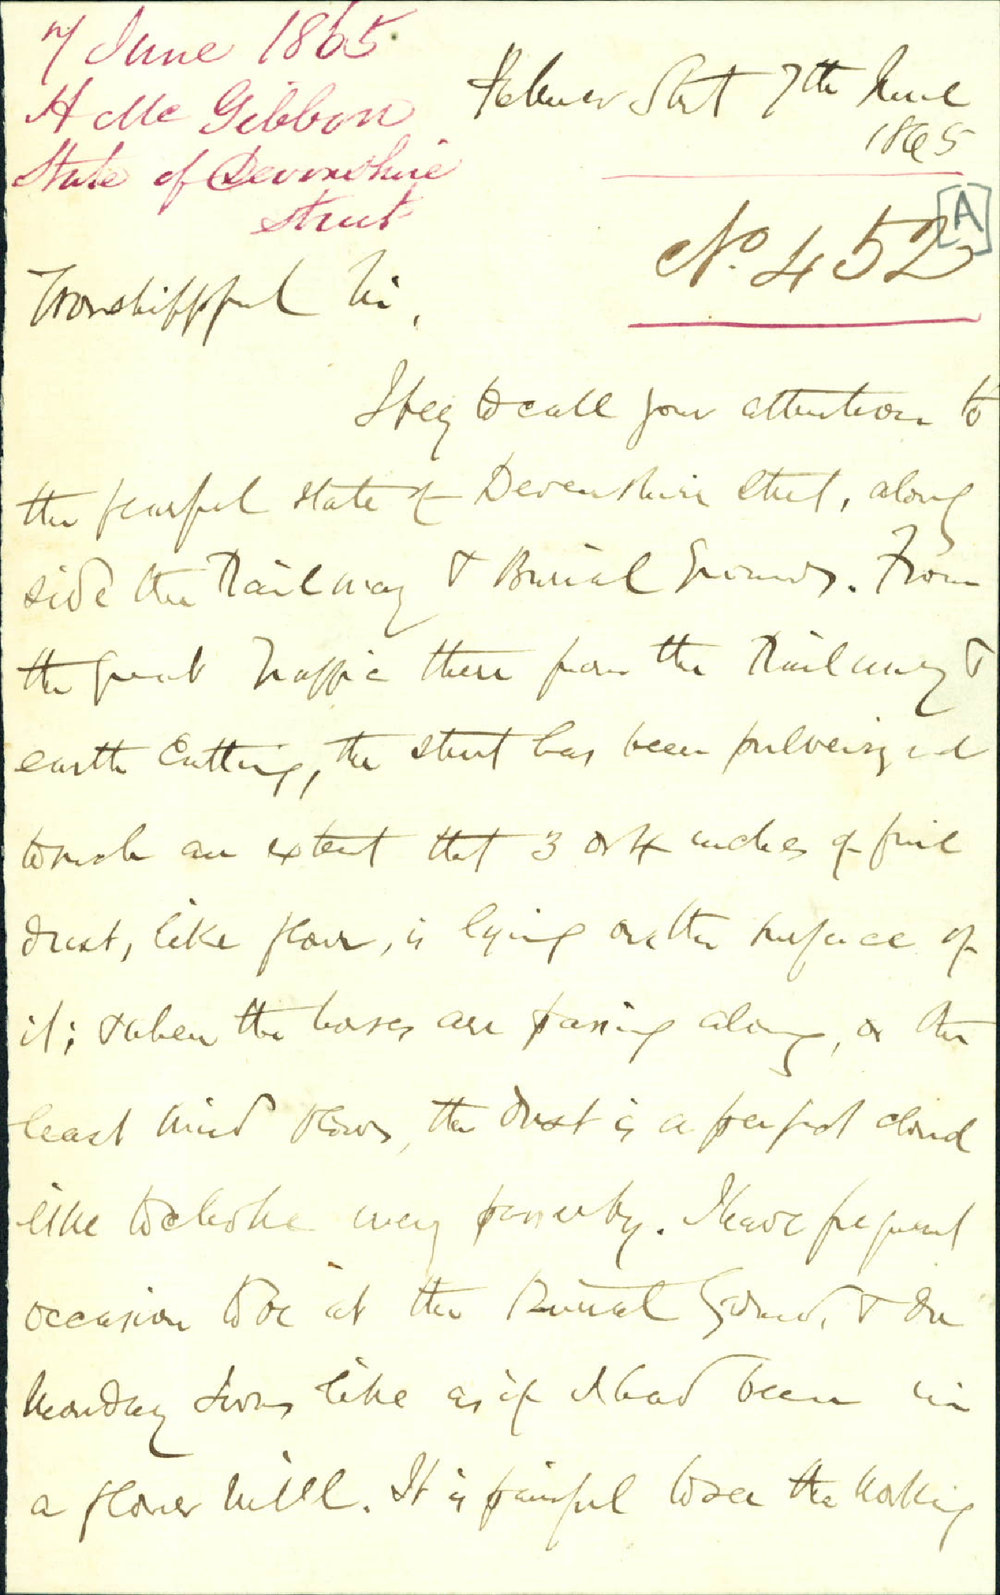 7 June 1865.
H Mc Gibbon
State of Devonshire
Street
Palmer Street 7th June
1865
No. 452
[A]
Worshippful Sir,
I beg to call your attention to
the fearful state of Devonshire Street, along
side the Railway & Burial Grounds. From
the great Traffic there from the Railway &
earth Cutting, the street has been pulverized
to such an extent that 3 or 4 inches of fine
dust, like flour, is lying on the surface of
it; & when the horses are passing along, or the
least wind blows, the dust is a perfect cloud
like to choke every passerby. I have frequent
occasion to be at the Burial Ground, & on
Monday I was like as if I had been in
a flower Mill. It is painful to see the working